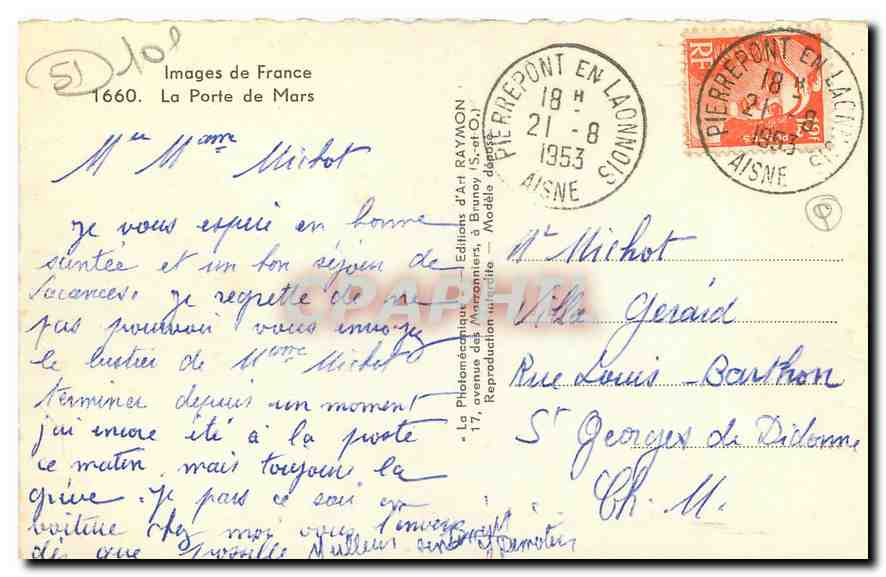 51 101
Images de France
1660. La Porte de Mars
Mr Mme Michot
Je vous espère en bonne
santée et un bon séjour de
vacances. Je regrette de ne
pas pouvoir vous envoyez
le bustier de Mme Michot
terminer depuis un moment
j'ai encore été à la poste
ce matin, mais toujours la
grève. Je pars ce soir en
voiture chez moi vous l'enverr
dès que possible Meilleur
« La Photomécanique » — Editions d'Art RAYMON
17, avenue des Marronniers, à Brunoy (S.-et-O.)
Reproduction interdite — Modèle déposé
PIERREPONT EN LAONNOIS
18 H
21 -8
1953
AISNE
RF
PIERREPONT EN LAONNOIS
18 H
21 -8
1953
AISNE
Mr Michot
Villa Gérard
Rue Louis Barthon
St Georges de Didonne
Ch. M.
CPAPHIL